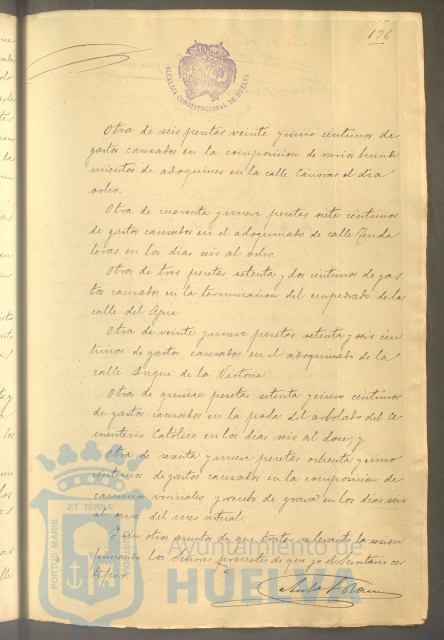 176
ALCALDIA CONSTITUCIONAL DE HUELVA
Otra de seis pesetas veinte y uno centimos de
gastos causados en la composicion de varios hundi
mientos de adoquines en la calle Cánovas el dia
ocho.
Otra de cuarenta y nueve pesetas siete centimos
de gastos causados en el adoquinado de calle Tenda
leras en los dias seis al ocho.
Otra de tres pesetas setenta y dos centimos de gas
tos causados en la terminacion del empedrado de la
calle del Agua
Otra de veinte y nueve pesetas setenta y seis cen
timos de gastos causados en el adoquinado de la
calle Duque de la Victoria
Otra de quince pesetas setenta y cinco centimos
de gastos causados en la poda del arbolado del Ce
menterio Católico en los dias seis al doce; y
Otra de sesenta y nueve pesetas ochenta y uno
centimos de gastos causados en la composicion de
caminos vecinales y de grava en los dias seis
al once del mes actual.
Y sin otros asuntos de que tratar se levantó la sesion
firmando los Señores presentes de que yo el Secretario cer
tifico.
PORTUS MARIS
ET TERRAE
Ayuntamiento de
HUELVA